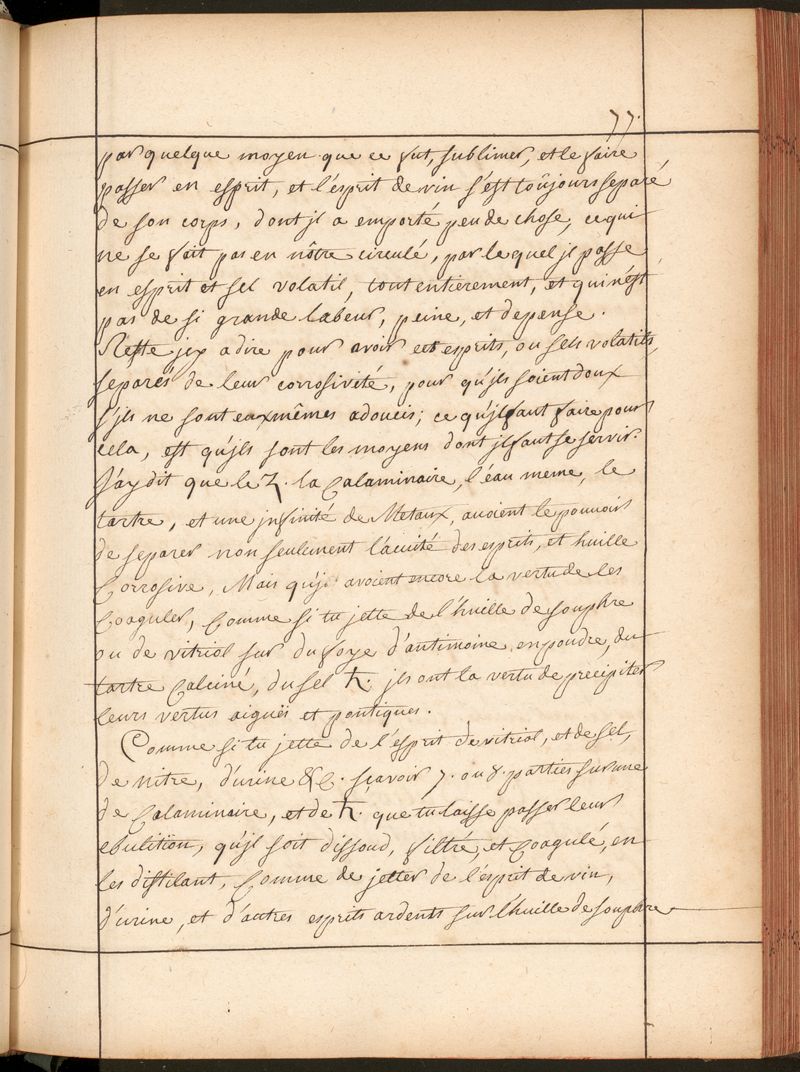 77.
par quelque moyen que ce fut, sublimer, et le faire
passer en esprit, et l'esprit de vin s'est toûjours separé
de son corps, dont jl a emporté peu de chose, ce qui
ne se fait pas en nôtre circulé, par le quel jl passe
en esprit et sel volatil, tout entierement, et qui n'est
pas de si grande labeur, peine, et depense.
Reste jcy a dire pour avoir ces esprits, ou sels volatils,
separés de leur corrosivité, pour qu'jls soient doux
s'jls ne sont eux mêmes adoucis; ce qu'jl faut faire pour
cela, est qu'jls sont les moyens dont jl faut se servir.
J'ay dit que le ♄. la Calaminaire, l'eau meme, le
tartre, et une jnfinité de Metaux, avoient le pouvoir
de separer non seulement l'acuité des esprits, et huille
Corrosive, Mais qu'jls avoient encore la vertu de les
Coaguler, Comme si tu jette de l'huille de souphre
ou de vitriol sur du foye d'antimoine en poudre, du
tartre Calciné, du sel ♄. jls ont la vertu de précipiter
leurs vertus aiguës et pontiques.
Comme si tu jette de l'esprit de vitriol, et de sel,
de nitre, d'urine &c. sçavoir 7. ou 8. parties sur une
de Calaminaire, et de ♄. que tu laisse passer leur
ebulition, qu'jl soit dissoud, filtré, et Coagulé, en
les distilant, Comme de jetter de l'esprit de vin,
d'urine, et d'autres esprits ardents sur l'huille de souphre